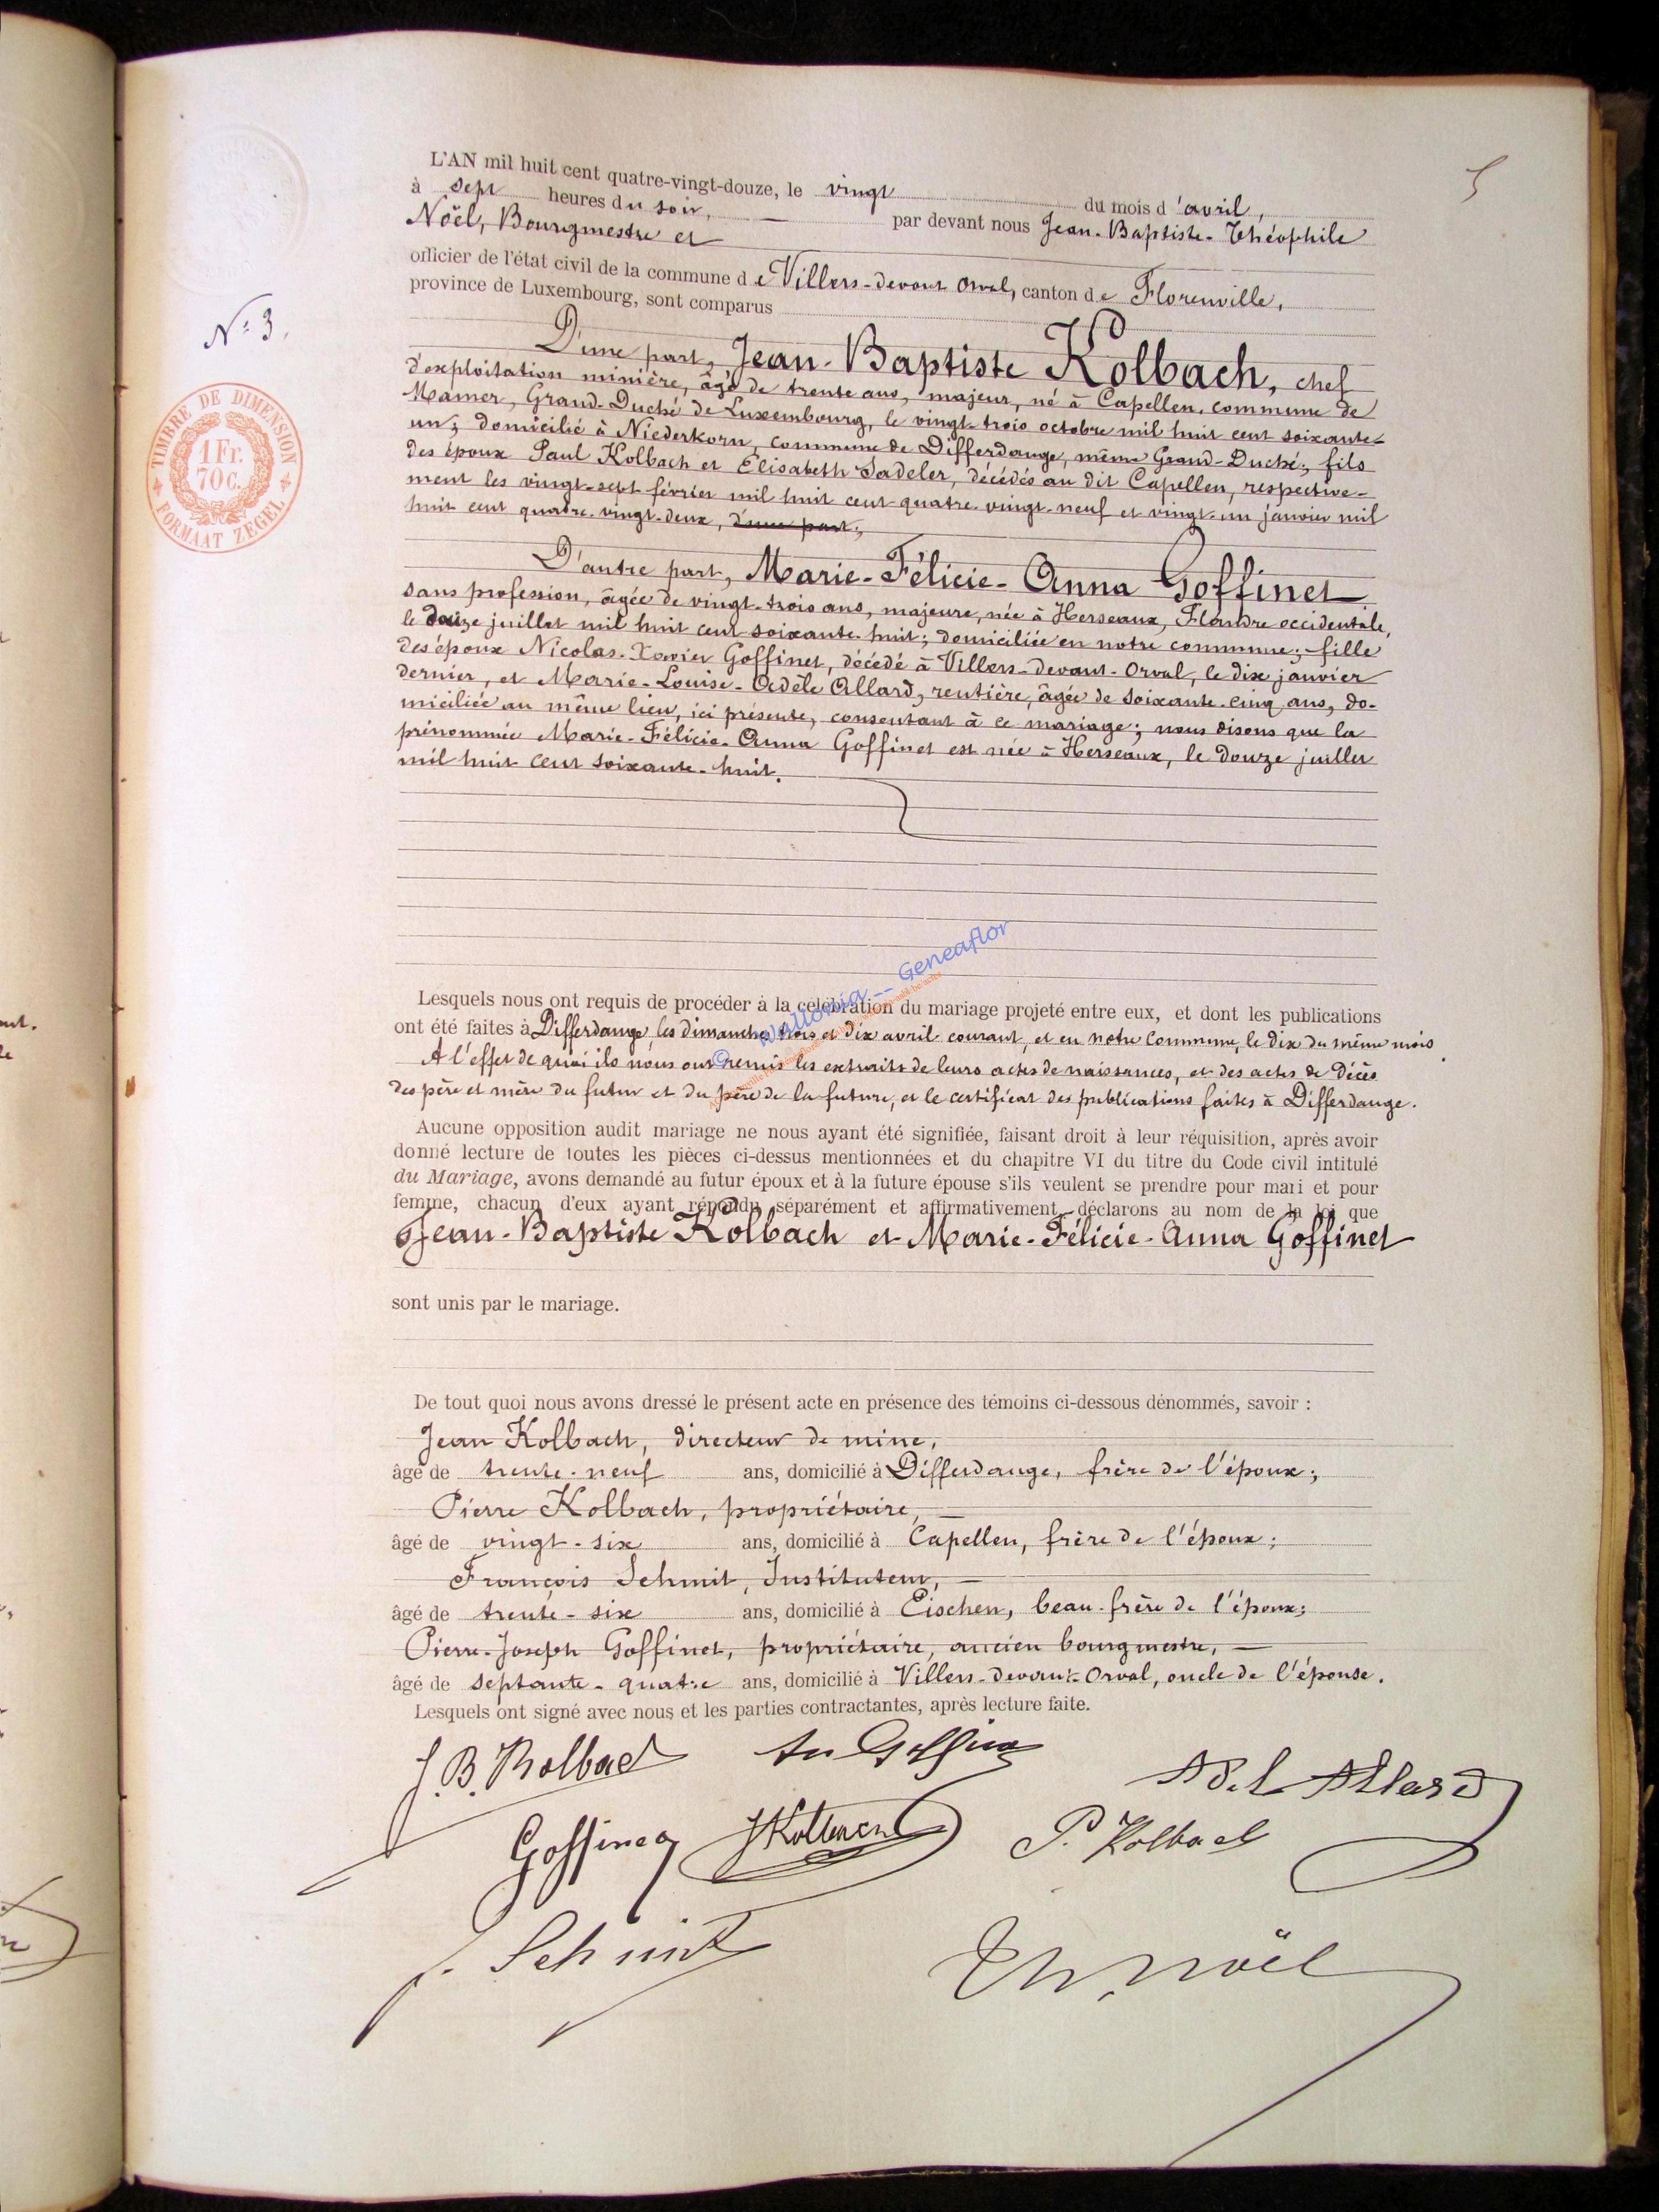 5
L'AN mil huit cent quatre-vingt-douze, le vingt du mois d'avril,
à sept heures du soir, par devant nous Jean-Baptiste-Théophile
Noël, Bourgmestre et
officier de l'état civil de la commune de Villers-devant Orval, canton de Florenville,
province de Luxembourg, sont comparus
N° 3.
D'une part, Jean-Baptiste Kolbach, chef
d'exploitation minière, âgé de trente ans, majeur, né à Capellen, commune de
Mamer, Grand-Duché de Luxembourg, le vingt-trois octobre mil huit cent soixante-
un; domicilié à Niederkorn, commune de Differdange, même Grand-Duché; fils
des époux Paul Kolbach et Elisabeth Sadeler, décédés au dit Capellen, respective-
ment les vingt-sept février mil huit cent quatre-vingt-neuf et vingt-un janvier mil
huit cent quatre-vingt-deux, d'une part;
TIMBRE DE DIMENSION
1 Fr.
70 c.
FORMAAT ZEGEL
D'autre part, Marie-Félicie-Anna Goffinet
sans profession, âgée de vingt-trois ans, majeure, née à Herseaux, Flandre occidentale,
le douze juillet mil huit cent soixante-huit; domiciliée en notre commune; fille
des époux Nicolas-Xavier Goffinet, décédé à Villers-devant-Orval, le dix janvier
dernier, et Marie-Louise-Adèle Allard, rentière, âgée de soixante-cinq ans, do-
miciliée au même lieu, ici présente, consentant à ce mariage; nous disons que la
prénommée Marie-Félicie-Anna Goffinet est née à Herseaux, le douze juillet
mil huit cent soixante-huit.
© Wallonia -- Geneaflor
Lesquels nous ont requis de procéder à la célébration du mariage projeté entre eux, et dont les publications
ont été faites à Differdange, les dimanches trois et dix avril courant, et en notre commune, le dix du même mois.
A l'effet de quoi ils nous ont remis les extraits de leurs actes de naissances, et des actes de décès
des père et mère du futur et du père de la future, et le certificat des publications faites à Differdange.
Aucune opposition audit mariage ne nous ayant été signifiée, faisant droit à leur réquisition, après avoir
donné lecture de toutes les pièces ci-dessus mentionnées et du chapitre VI du titre du Code civil intitulé
du Mariage, avons demandé au futur époux et à la future épouse s'ils veulent se prendre pour mari et pour
femme, chacun d'eux ayant répondu séparément et affirmativement, déclarons au nom de la loi que
Jean-Baptiste Kolbach et Marie-Félicie-Anna Goffinet
sont unis par le mariage.
De tout quoi nous avons dressé le présent acte en présence des témoins ci-dessous dénommés, savoir :
Jean Kolbach, directeur de mine,
âgé de trente-neuf ans, domicilié à Differdange, frère de l'époux;
Pierre Kolbach, propriétaire,
âgé de vingt-six ans, domicilié à Capellen, frère de l'époux;
François Schmit, Instituteur,
âgé de trente-six ans, domicilié à Eischen, beau-frère de l'époux;
Pierre-Joseph Goffinet, propriétaire, ancien bourgmestre,
âgé de septante-quatre ans, domicilié à Villers-devant-Orval, oncle de l'épouse.
Lesquels ont signé avec nous et les parties contractantes, après lecture faite.
J.B. Kolbach An Goffinet Adel Allard
Goffinet J Kolbach P. Kolbach
f. Schmit Th. Noël